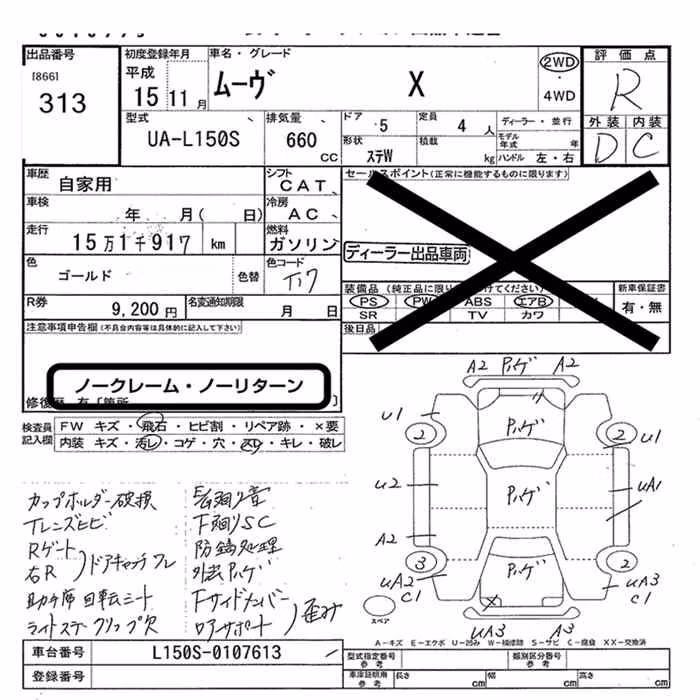 出品番号
[866]
313
初度登録年月
平成
15 11 月
車名・グレード
ムーヴ X
2WD
・
4WD
評価点
R
外装 内装
D C
型式
UA-L150S
排気量
660 CC
ドア 5
定員 4 人
形状 ステW
積載 kg
ディーラー・並行
モデル年式 年
ハンドル 左・右
車歴 自家用
シフト CAT
車検 年 月( 日)
冷房 AC
走行 15万1千917 km
燃料 ガソリン
色 ゴールド 色替
色コード T17
R券 9,200円
名変通知期限 月 日
セールスポイント(正常に機能するものに限ります)
ディーラー出品車両
装備品 (純正品に限り けてください)
PS PW ABS エアB
SR TV カワ
新車保証書
有・無
後日品
注意事項申告欄(不具合内容等は具体的に記入して下さい)
ノークレーム・ノーリターン
修復歴 有〔箇所 〕
検査員記入欄
FW キズ・飛石・ヒビ割・リペア跡・×要
内装 キズ・汚レ・コゲ・穴・スレ・キレ・破レ
カップホルダー破損
Tレンズヒビ
Rゲート
右R )ドアキャッチフレ
助手席回転シート
ライトステークリップ欠
下廻りSC
防錆処理
外装ハゲ
Fサイドメンバー
ロアサポート )歪み
A2 ハゲ A2
U1
ハゲ
2
2
U1
U2
ハゲ
UA1
A2
3
2
UA2
C1
ハゲ
UA3
C1
X
スペア
UA3
A3
A-キズ E-エクボ U-凹み W-補修跡 S-サビ C-腐食 XX-交換済
車台番号 L150S-0107613
登録番号
型式指定番号 参考
類別区分番号 参考
車庫証明用 参考
長さ cm
幅 cm
高さ cm